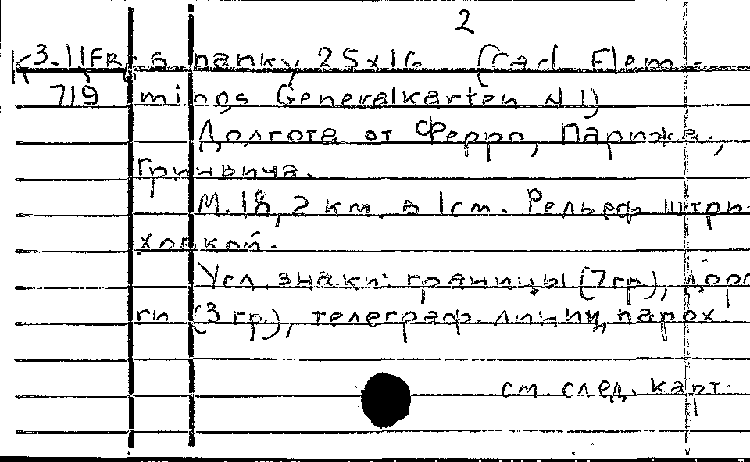 2
К3-11FR в папку 25x16 (Carl Flem-
719 mings Generalkarten N 1)
Долгота от Ферро, Парижа,
Гринвича.
М. 18,2 км. в 1см. Рельеф штри-
ховкой.
Усл. знаки: границы (7гр), доро
ги (3 гр), телеграф. линии, парох.
см. след. карт.